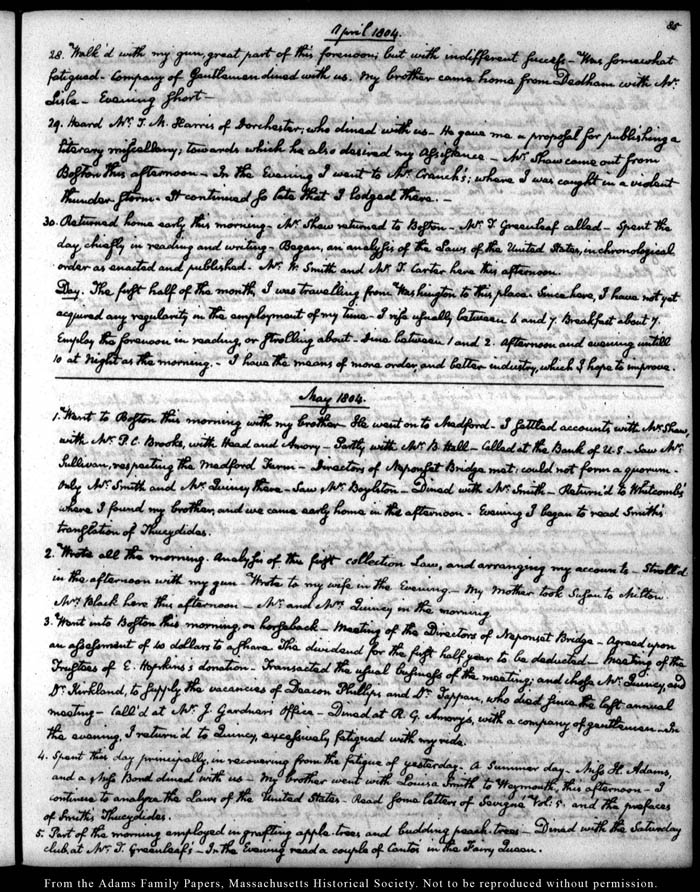 April 1804.
85
28. Walk'd with my gun, great part of this forenoon; but with indifferent success – Was somewhat
fatigued – Company of Gentlemen dined with us. My brother came home from Dedham with Mr.
Lisle – Evening short –
29. Heard Mr. T. M. Harris of Dorchester, who dined with us – He gave me a proposal for publishing a
literary miscellany; towards which he also desired my Assistance – Mr. Shaw came out from
Boston this afternoon – In the Evening I went to Mr. Cranch's; where I was caught in a violent
thunder storm – It continued so late that I lodged there. –
30. Returned home early this morning – Mr. Shaw returned to Boston – Mr. T. Greenleaf called – Spent the
day, chiefly in reading and writing – Began, an analysis of the Laws of the United States, in chronological
order as enacted and published – Mr. W. Smith and Mr. T. Carter here this afternoon.
Day. The first half of the month, I was travelling from Washington to this place. Since here, I have not yet
acquired any regularity in the employment of my time – I rise usually between 6 and 7. Breakfast about 7.
Employ the forenoon in reading, or strolling about – dine between 1 and 2. Afternoon and evening untill
10 at Night as the morning. – I have the means of more order, and better industry, which I hope to improve.
May 1804.
1. Went to Boston this morning with my brother He went on to Medford – I settled accounts, with Mr. Shaw,
with Mr. P. C. Brooks, with Head and Amory – Partly with Mr. B. Hall – Called at the Bank of U.S. – Saw Mr.
Sullivan, respecting the Medford Farm – Directors of Neponset Bridge met; could not form a quorum –
only Mr. Smith and Mr. Quincy there – Saw Mr. Boylston – Dined with Mr. Smith – Return'd to Whitcomb's
where I found my brother, and we came early home in the afternoon – Evening I began to read Smith's
translation of Thucydides.
2. Wrote all the morning. Analysis of the first collection Law, and arranging my accounts – Stroll'd
in the afternoon with my gun – Wrote to my wife in the Evening – My Mother took Susan to Milton.
Mrs. Black here this afternoon – Mr. and Mrs. Quincy in the morning
3. Went into Boston this morning on horseback – Meeting of the Directors of Neponset Bridge – Agreed upon
an assessment of 10 dollars to a share The dividend for the first half year to be deducted – Meeting of the
Trustees of E. Hopkins's donation – Transacted the usual business of the meeting; and chose Mr. Quincy, and
Dr. Kirkland, to supply the vacancies of Deacon Phillips and Dr. Tappan, who died since the last annual
meeting – Call'd at Mr. J. Gardner's Office – Dined at R. G. Amory's, with a company of gentlemen – In
the evening, I return'd to Quincy, excessively fatigued with my ride.
4. Spent this day principally, in recovering from the fatigue of yesterday – A Summer day – Miss H. Adams,
and a Miss Bond dined with us – My brother went with Louisa Smith to Weymouth, this afternoon – I
continue to analyze the Laws of the United States – Read some letters of Sevigné Vol: 5. and the prefaces
of Smith's Thucydides.
5. Part of the morning employed in grafting apple-trees and budding peach-trees – Dined with the Saturday
club, at Mr. T. Greenleaf's – In the Evening read a couple of Cantos in the Fairy Queen.
From the Adams Family Papers, Massachusetts Historical Society. Not to be reproduced without permission.